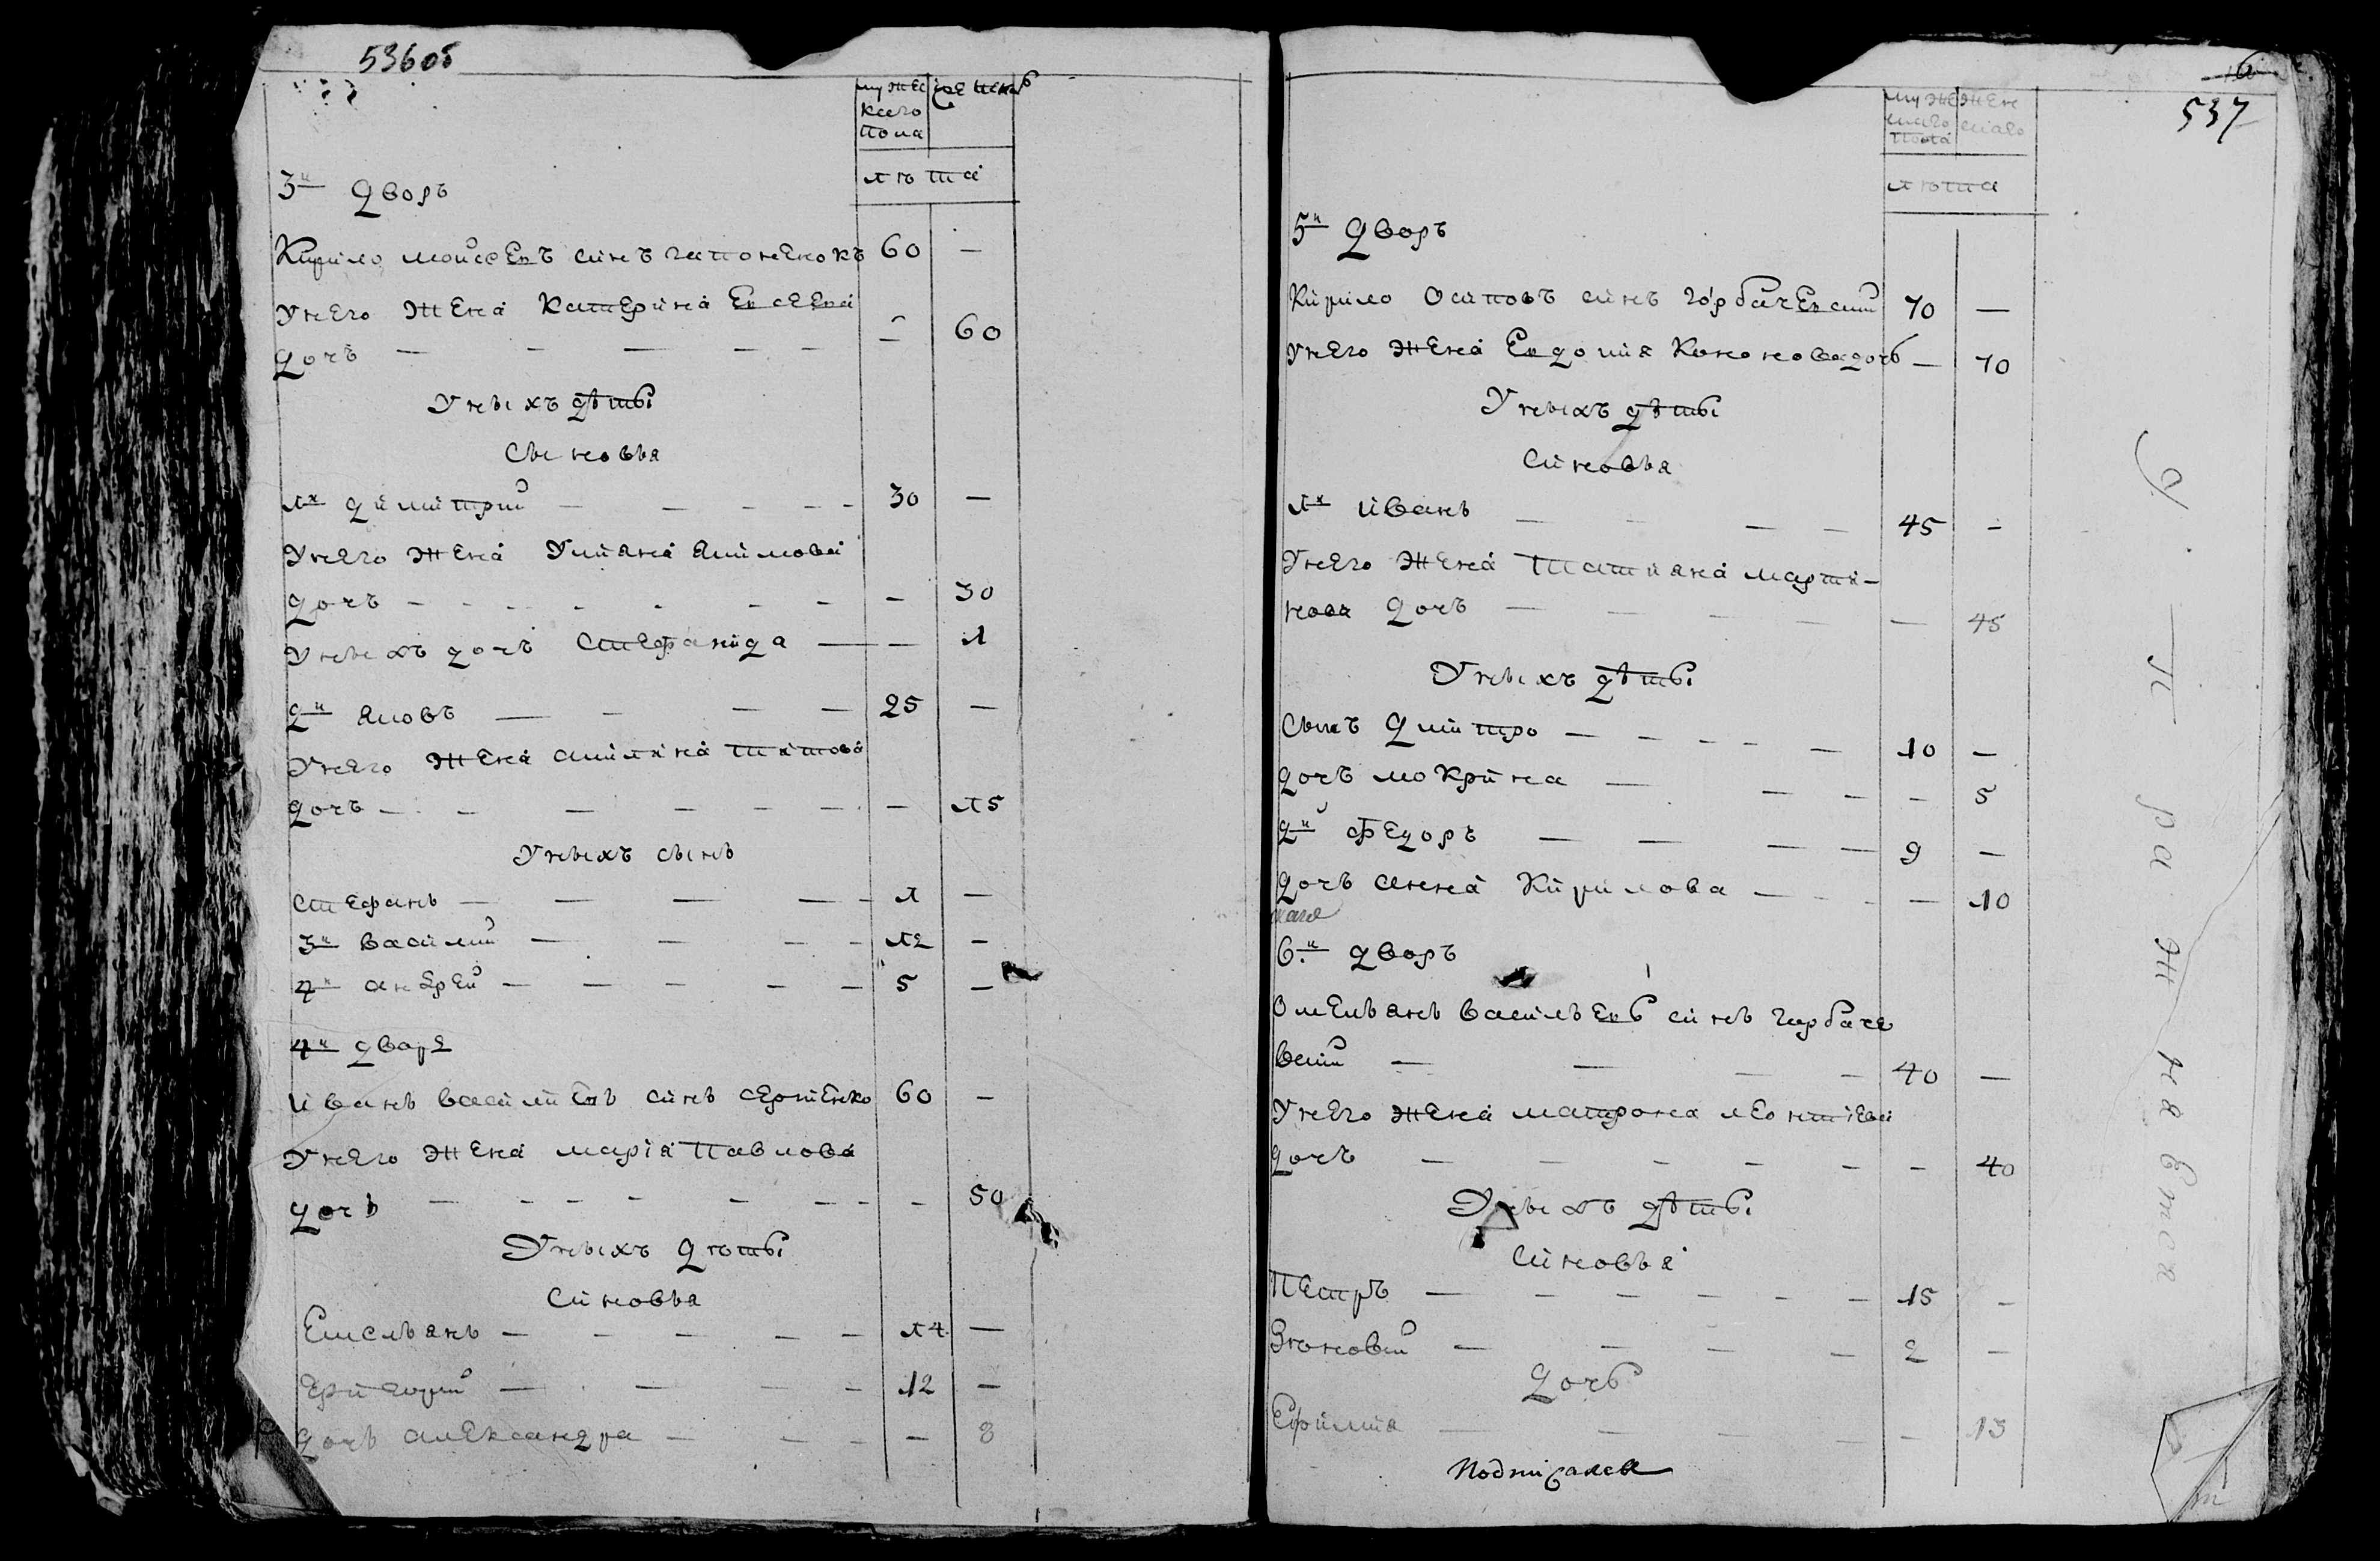 536об
мужескаго пола женскъ
лѣта
3й дворъ
Кирило мойсеевъ синъ гапоненокъ 60 —
Унего жена катерина Евсеева
дочъ — — — — — — 60
Уныхъ дѣты
Сыновья
1й димитрий — — — — — 30 —
Унего жена Улияна якимова
дочъ — — — — — — — — 30
Уныхъ дочъ Стефанида — — 1
2й яковъ — — — — 25 —
Унего жена акилина титова
дочъ — — — — — — — — 15
Уныхъ сынъ
Стефанъ — — — — — 1 —
3й василий — — — — 12 —
4й андрей — — — — — 5 —
4й дворъ
иванъ василиевъ синъ сергиенко 60 —
Унего жена мария павлова
дочъ — — — — — — — — 50
Уныхъ дѣты
Синовья
Емельянъ — — — — — 14 —
Григорий — — — — 12 —
дочъ александра — — — — 8
537
мужескаго пола женскаго
лѣта
5й дворъ
Кирило Осиповъ синъ горбачевский 70 —
Унего жена Евдокия Кононова дочь — 70
Уныхъ дѣты
Синовья
1й иванъ — — — — 45 —
Унего жена Татияна марти-
нова дочъ — — — — — 45
Уныхъ дѣты
Сынъ дмитро — — — — — 10 —
дочъ мокрина — — — — 5
2й федоръ — — — — 9 —
дочъ анна Кирилова — — — — 10
6й дворъ
Омельянъ васильевъ синъ горбаче
вский — — — — 40 —
Унего жена матрона леонтиева
дочъ — — — — — — — 40
Уныхъ дѣты
Синовья
Петръ — — — — — — 15 —
Зѣновий — — — — 2 —
дочь
Ефимия — — — — — 13
Подписалея
У. п ра ж няется